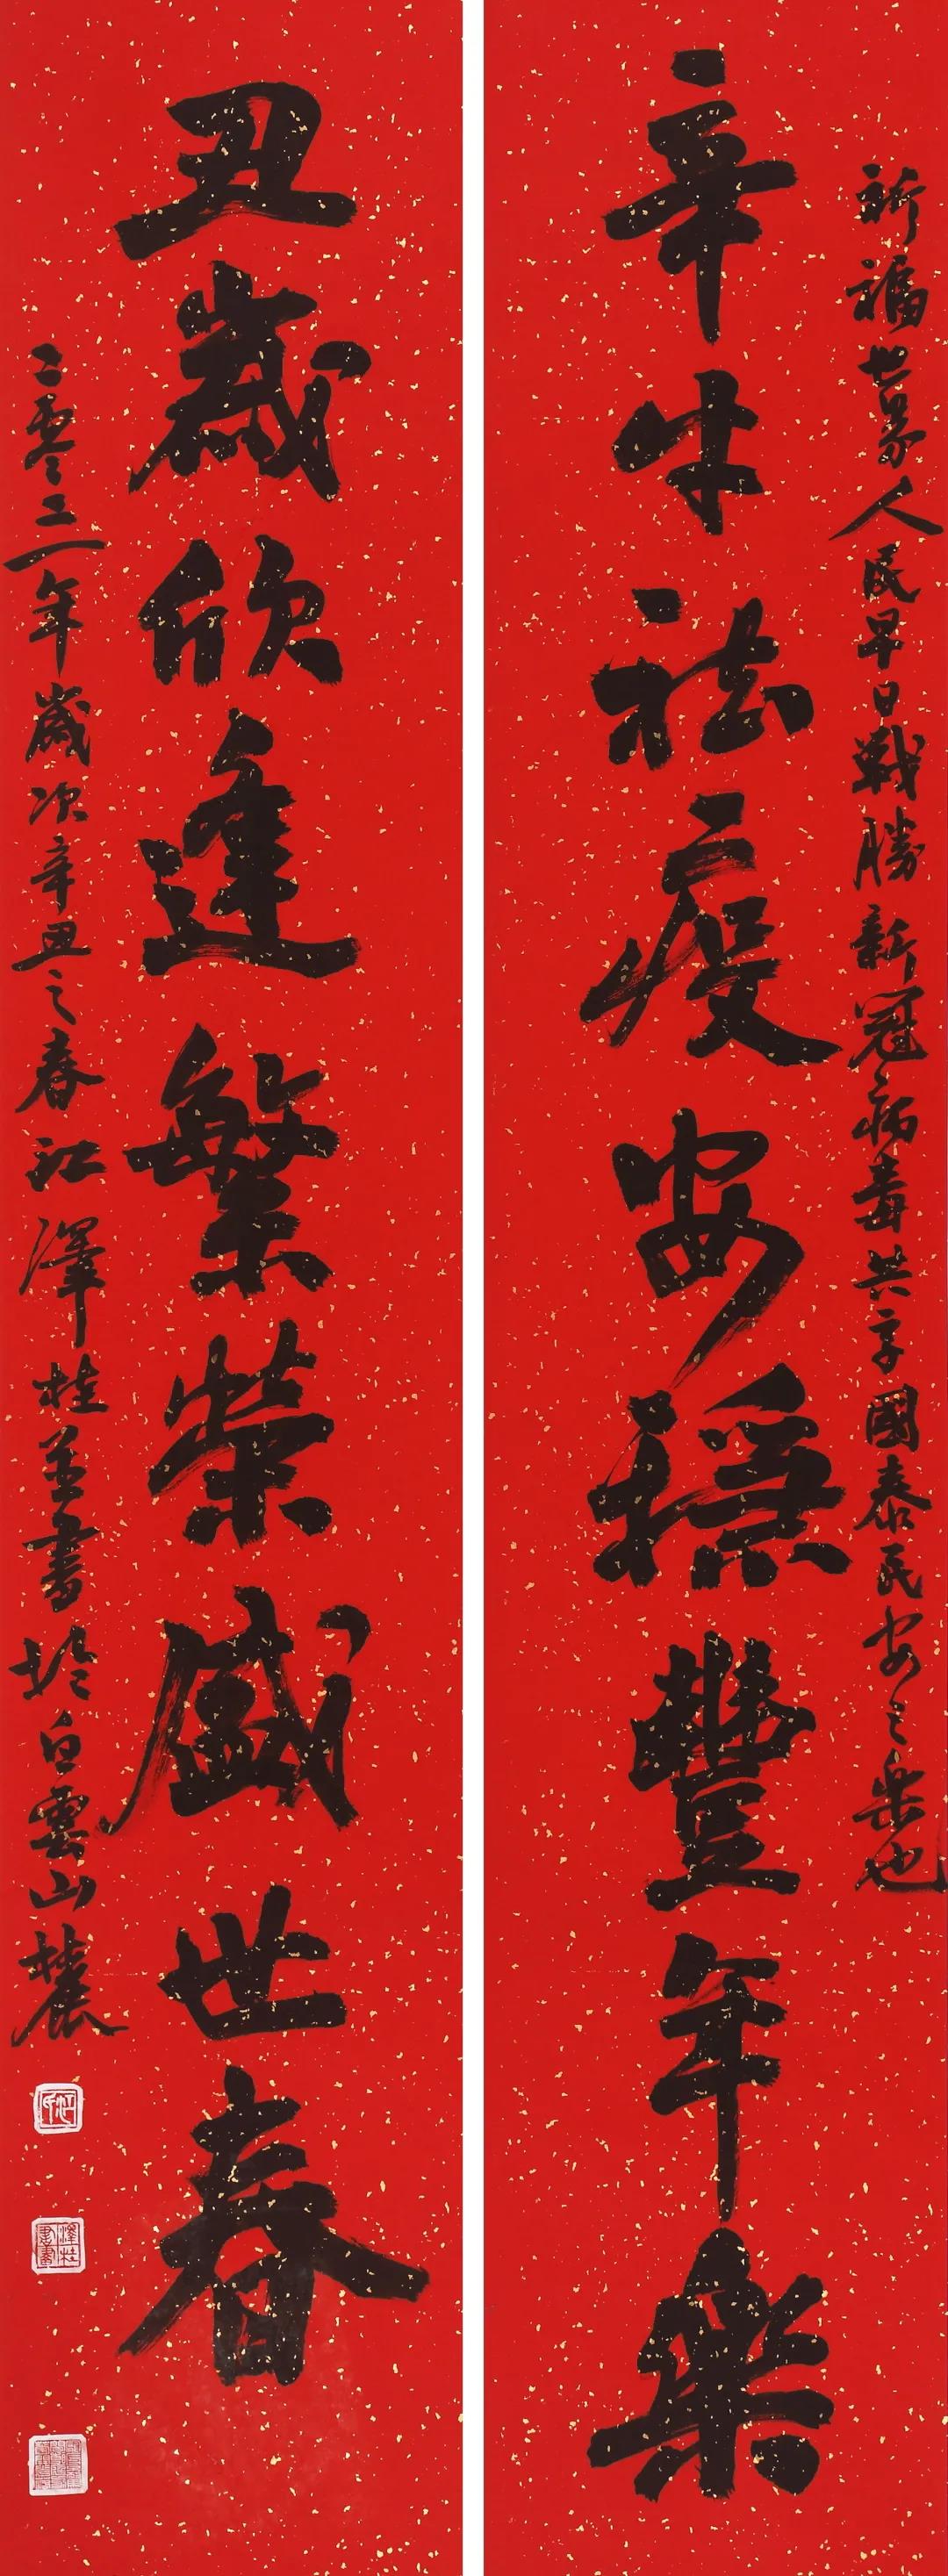 祈福世界人民早日戰勝新冠病毒共享國泰民安之樂也
辛牛祛疫安穩豐年樂
丑歲欣逢繁榮盛世春
二零二一年歲次辛丑之春江澤桂並書於白雲山麓
江氏
澤桂書畫